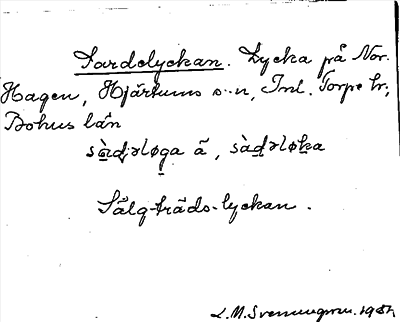 Sardelyckan. Lycka på Nor.
Hagen, Hjärtums s:n, Inl. Torpe hr;
Bohus län
sàdɹløga ã, sàdɹløka
Sälg-träds-lyckan.
L.M. Svenungsson. 1951